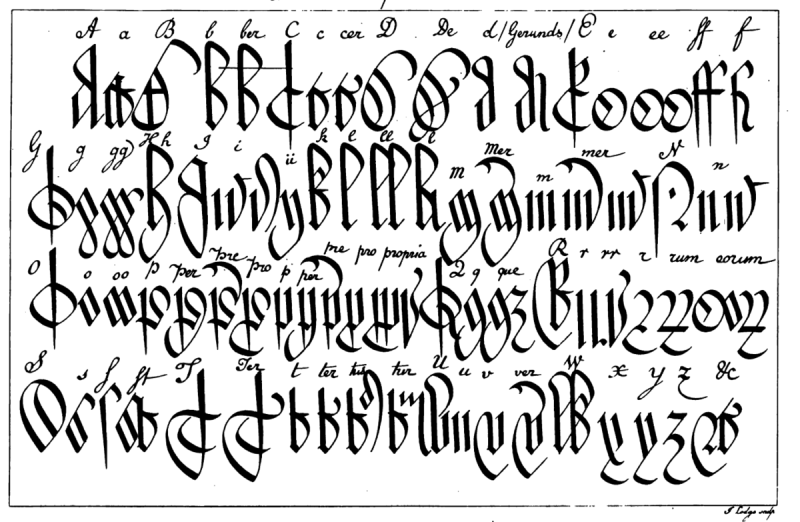 A a B b ber C c cer D De d/Gerunds/ E e ee ff f
G g gg H h I i ii k l ll M Mer m mer N n
O o oo p per pre pro p per pre pro propria Q q que R r rr r rum eorum
S s f ft T Ter t ter tus ter U u v ver W x y z &c
J Lodge sculp